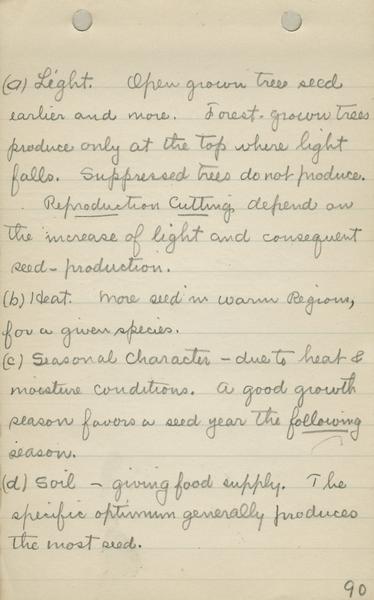 (a) Light. Open grown trees seed
earlier and more. Forest-grown trees
produce only at the top where light
falls. Suppressed trees do not produce.
Reproduction Cutting, depend on
the increase of light and consequent
seed-production.
(b) Heat. More seed in warm Regions,
for a given species.
(c) Seasonal Character - due to heat &
moisture conditions. A good growth
season favors a seed year the following
season.
(d) Soil - giving food supply. The
specific optimum generally produces
the most seed.
90